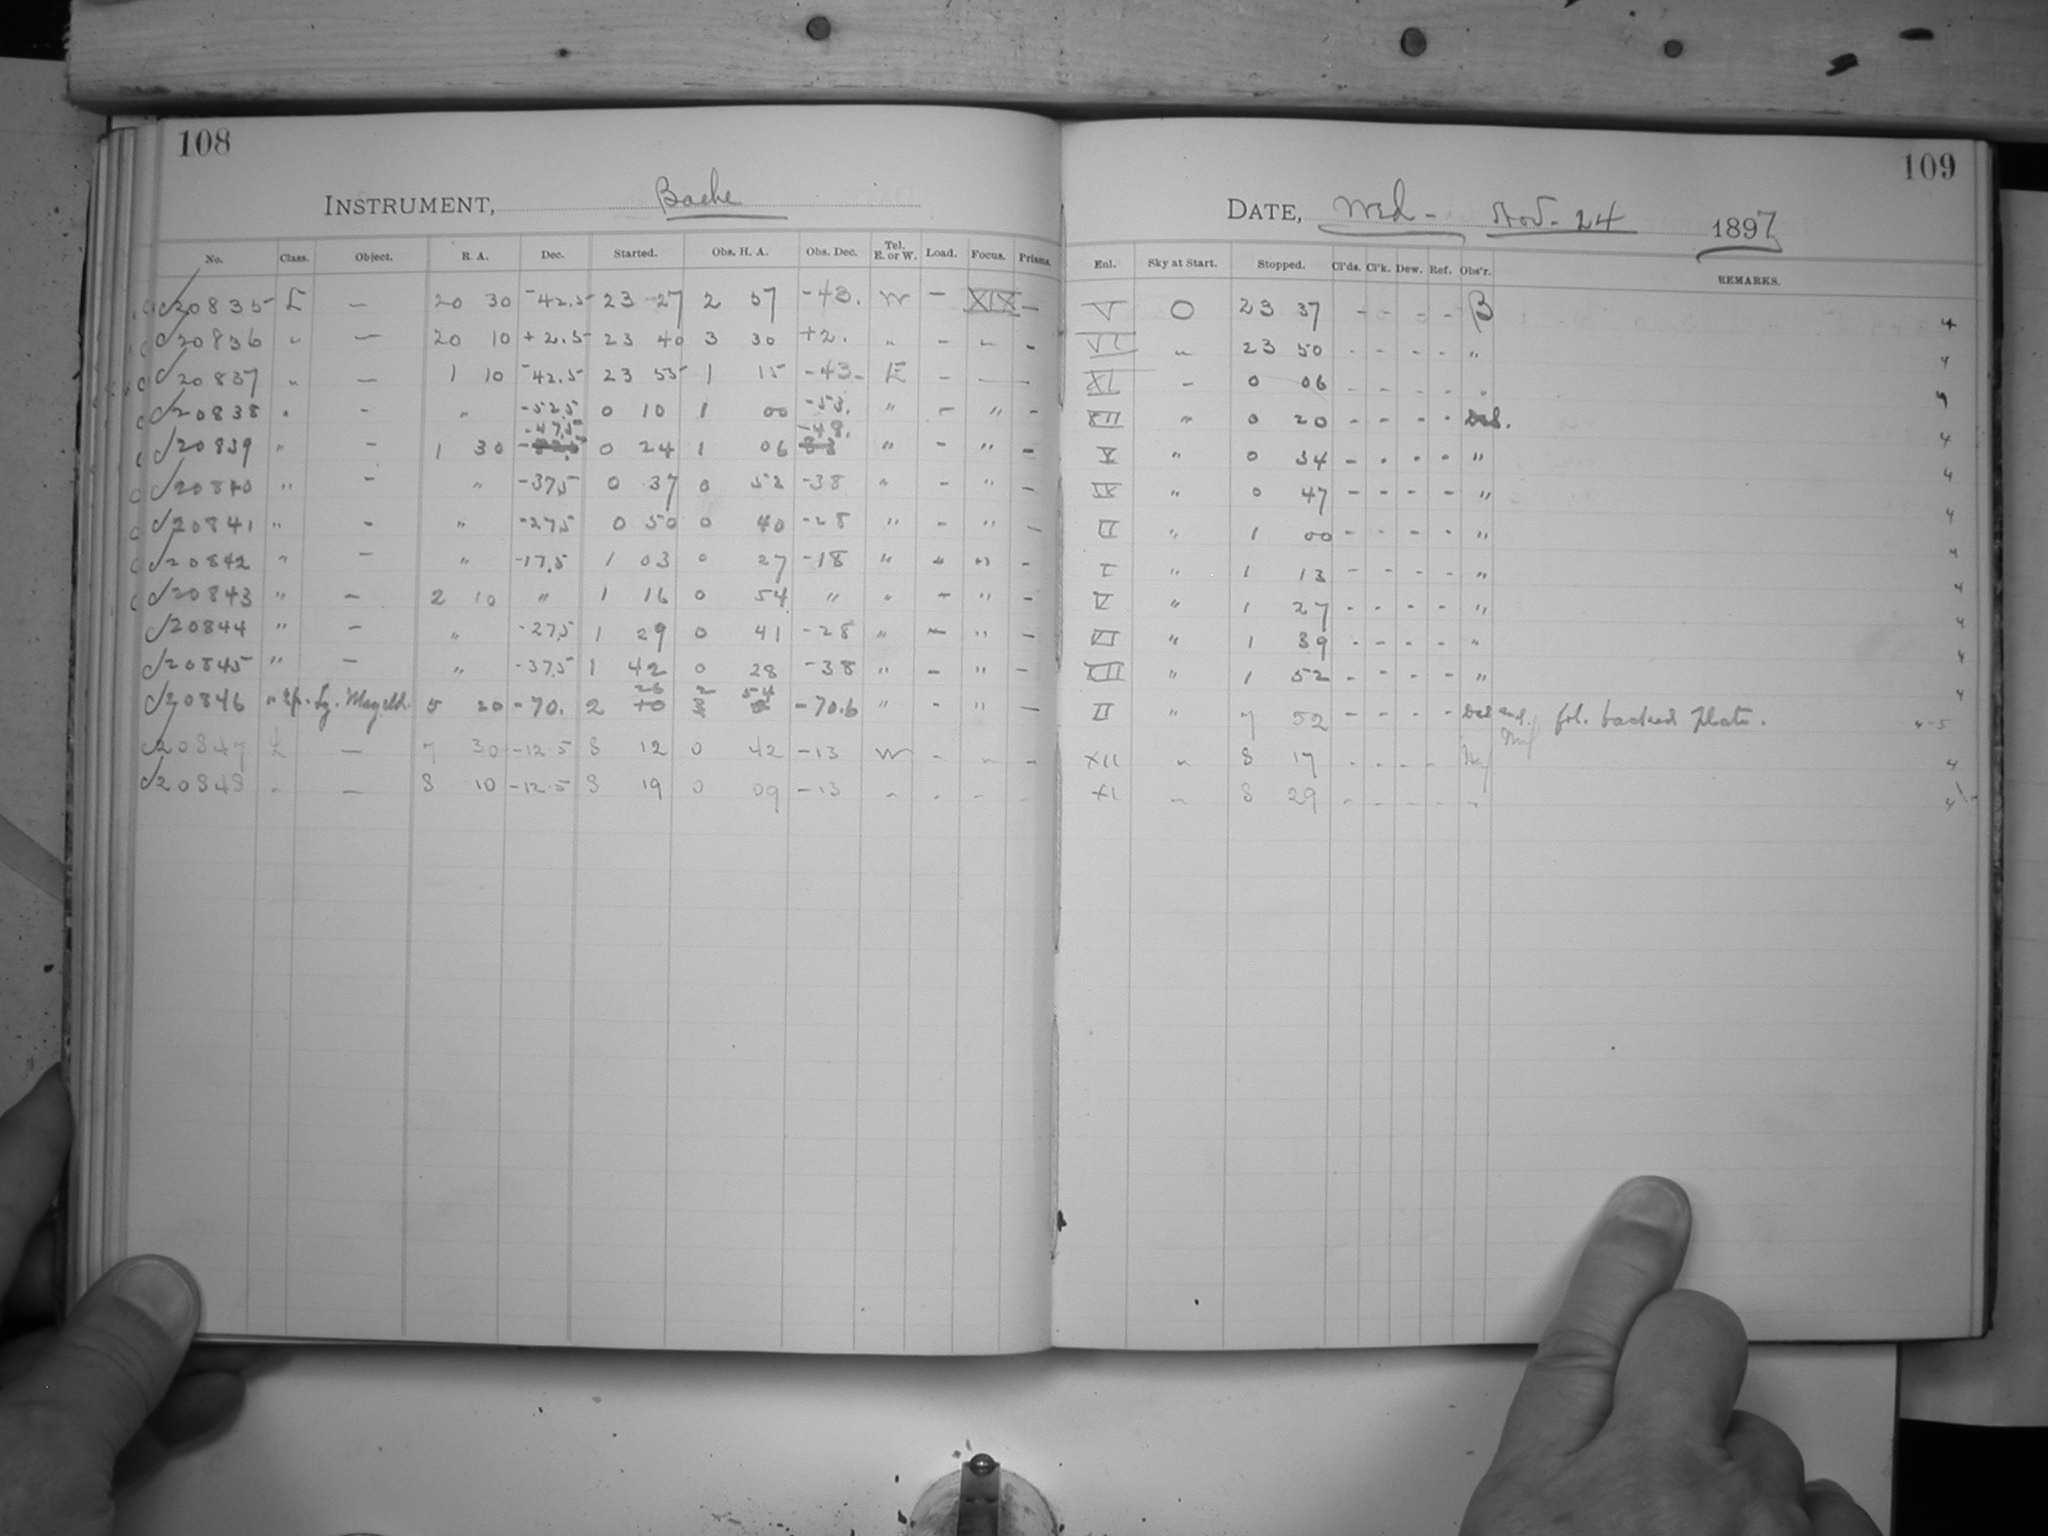 108
INSTRUMENT, Bache
No. Class. Object. R. A. Dec. Started. Obs. H. A. Obs. Dec. Tel. E. or W. Load. Focus. Prisms.
20835 L — 20 30 -42.5 23 27 2 57 -43. W - XIX —
20836 " — 20 10 +2.5 23 40 3 30 +2. " - " -
20837 " — 1 10 -42.5 23 55 1 15 -43- E - — —
20838 " - " -52.5 0 10 1 00 -53. " - " -
20839 " - 1 30 -47.5 0 24 1 06 -48. " - " -
20840 " - " -37.5 0 37 0 52 -38 " - " -
20841 " - " -27.5 0 50 0 40 -28 " - " -
20842 " - " -17.5 1 03 0 27 -18 " " " -
20843 " - 2 10 " 1 16 0 54 " " - " -
20844 " - " -27.5 1 29 0 41 -28 " - " -
20845 " - " -37.5 1 42 0 28 -38 " - " -
20846 " Sp. Lg. Magell. 5 20 -70. 2 26 2 54 -70.6 " - " -
20847 L — 7 30 -12.5 8 12 0 42 -13 W - " -
20848 " — 8 10 -12.5 8 19 0 09 -13 " - " -
109
DATE, Wed- Nov- 24 1897
Enl. Sky at Start. Stopped. Cl'ds. Cl'k. Dew. Ref. Obs'r. REMARKS.
V O 23 37 - - - - B 4
VI " 23 50 - - - - " 4
XI " 0 06 - - - - " 4
XII " 0 20 - - - - 4
V " 0 34 - - - - " 4
IX " 0 47 - - - - " 4
II " 1 00 - - - - " 4
I " 1 13 - - - - " 4
V " 1 27 - - - - " 4
VI " 1 39 - - - - " 4
XII " 1 52 - - - - " 4
II " 7 52 - - - - and. fol. backed plate. 4-5
XII " 8 17 - - - - 4
XI " 8 29 - - - - " 4